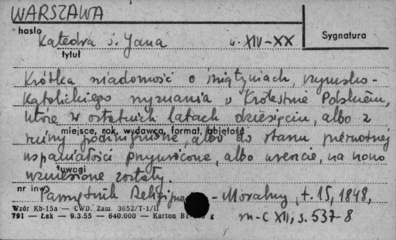 WARSZAWA
hasło
Katedra ś. Jana w. XIV-XX
Sygnatura
tytuł
Krótka wiadomość o świątyniach, rzymsko-
katolickiego wyznania w Królestwie Polskiem,
które w ostatnich latach dziesięciu, albo z
miejsce, rok, wydawca, format, objętość
ruiny podźwignione, albo do stanu pierwotnej
wspaniałości przywrócone, albo wreszcie, na nowo
uwagi
wzniesione zostały.
nr inw.
Pamiętnik Religijno - Moralny, t. 15, 1848,
Wzór Kb-15a — CWD. Zam. 3652/T-1/II
791 — Łak — 9.3.55 — 640.000 — Karton B g
m-c XII, s. 537-8